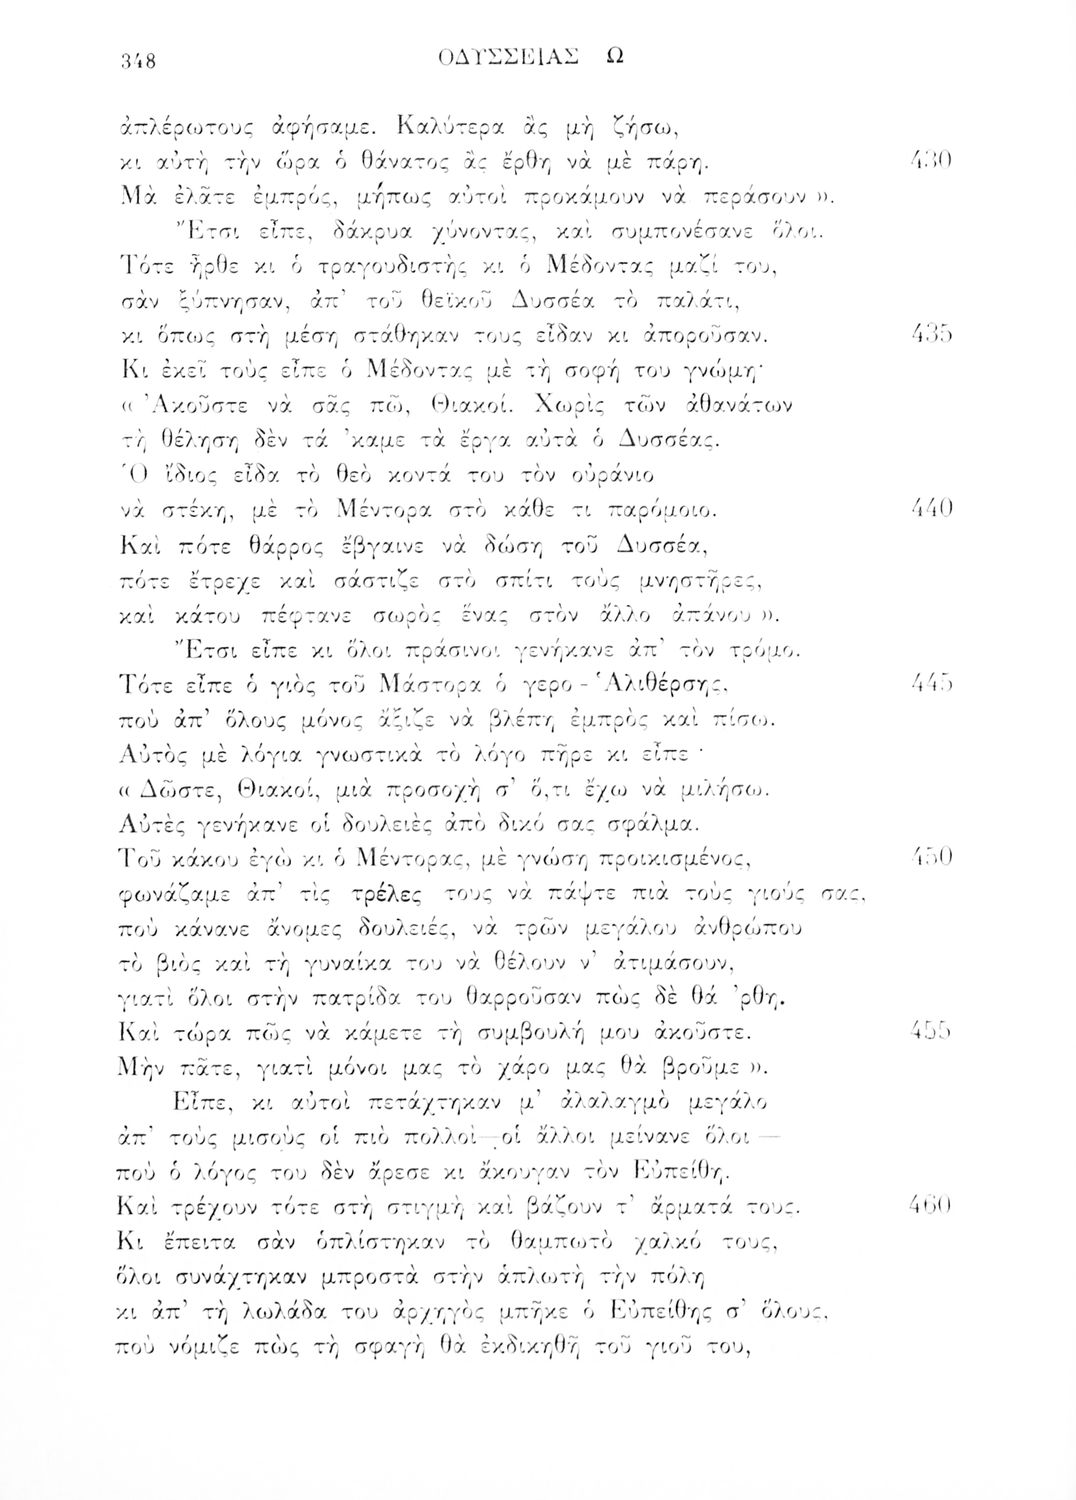 348 ΟΔΥΣΣΕΙΑΣ Ω
ἀπλέρωτους ἀφήσαμε. Καλύτερα ἂς μὴ ζήσω,
κι αὐτὴ τὴν ὥρα ὁ θάνατος ἂς ἔρθη νὰ μὲ πάρη. 430
Μὰ ἐλᾶτε ἐμπρός, μήπως αὐτοὶ προκάμουν νὰ περάσουν ».
Ἔτσι εἶπε, δάκρυα χύνοντας, καὶ συμπονέσανε ὅλοι.
Τότε ἦρθε κι ὁ τραγουδιστὴς κι ὁ Μέδοντας μαζί του,
σὰν ξύπνησαν, ἀπ’ τοῦ θεϊκοῦ Δυσσέα τὸ παλάτι,
κι ὅπως στὴ μέση στάθηκαν τους εἶδαν κι ἀποροῦσαν. 435
Κι ἐκεῖ τοὺς εἶπε ὁ Μέδοντας μὲ τὴ σοφή του γνώμη·
« Ἀκοῦστε νὰ σᾶς πῶ, Θιακοί. Χωρὶς τῶν ἀθανάτων
τὴ θέληση δὲν τά ’καμε τὰ ἔργα αὐτὰ ὁ Δυσσέας.
Ὁ ἴδιος εἶδα τὸ θεὸ κοντά του τὸν οὐράνιο
νὰ στέκη, μὲ τὸ Μέντορα στὸ κάθε τι παρόμοιο. 440
Καὶ πότε θάρρος ἔβγαινε νὰ δώση τοῦ Δυσσέα,
πότε ἔτρεχε καὶ σάστιζε στὸ σπίτι τοὺς μνηστῆρες,
καὶ κάτου πέφτανε σωρὸς ἕνας στὸν ἄλλο ἀπάνου ».
Ἔτσι εἶπε κι ὅλοι πράσινοι γενήκανε ἀπ’ τὸν τρόμο.
Τότε εἶπε ὁ γιὸς τοῦ Μάστορα ὁ γερο - Ἁλιθέρσης, 445
ποὺ ἀπ’ ὅλους μόνος ἄξιζε νὰ βλέπη ἐμπρὸς καὶ πίσω.
Αὐτὸς μὲ λόγια γνωστικὰ τὸ λόγο πῆρε κι εἶπε ·
« Δῶστε, Θιακοί, μιὰ προσοχὴ σ’ ὅ,τι ἔχω νὰ μιλήσω.
Αὐτὲς γενήκανε οἱ δουλειὲς ἀπὸ δικό σας σφάλμα.
Τοῦ κάκου ἐγὼ κι ὁ Μέντορας, μὲ γνώση προικισμένος, 450
φωνάζαμε ἀπ’ τὶς τρέλες τους νὰ πάψτε πιὰ τοὺς γιούς σας,
ποὺ κάνανε ἄνομες δουλειές, νὰ τρῶν μεγάλου ἀνθρώπου
τὸ βιὸς καὶ τὴ γυναίκα του νὰ θέλουν ν’ ἀτιμάσουν,
γιατὶ ὅλοι στὴν πατρίδα του θαρροῦσαν πὼς δὲ θά ’ρθη.
Καὶ τώρα πῶς νὰ κάμετε τὴ συμβουλή μου ἀκοῦστε. 455
Μὴν πᾶτε, γιατὶ μόνοι μας τὸ χάρο μας θὰ βροῦμε ».
Εἶπε, κι αὐτοὶ πετάχτηκαν μ’ ἀλαλαγμὸ μεγάλο
ἀπ’ τοὺς μισοὺς οἱ πιὸ πολλοὶ —οἱ ἄλλοι μείνανε ὅλοι —
ποὺ ὁ λόγος του δὲν ἄρεσε κι ἄκουγαν τὸν Εὐπείθη.
Καὶ τρέχουν τότε στὴ στιγμὴ καὶ βάζουν τ’ ἄρματά τους. 460
Κι ἔπειτα σὰν ὁπλίστηκαν τὸ θαμπωτὸ χαλκό τους,
ὅλοι συνάχτηκαν μπροστὰ στὴν ἁπλωτὴ τὴν πόλη
κι ἀπ’ τὴ λωλάδα του ἀρχηγὸς μπῆκε ὁ Εὐπείθης σ’ ὅλους,
ποὺ νόμιζε πὼς τὴ σφαγὴ θὰ ἐκδικηθῆ τοῦ γιοῦ του,